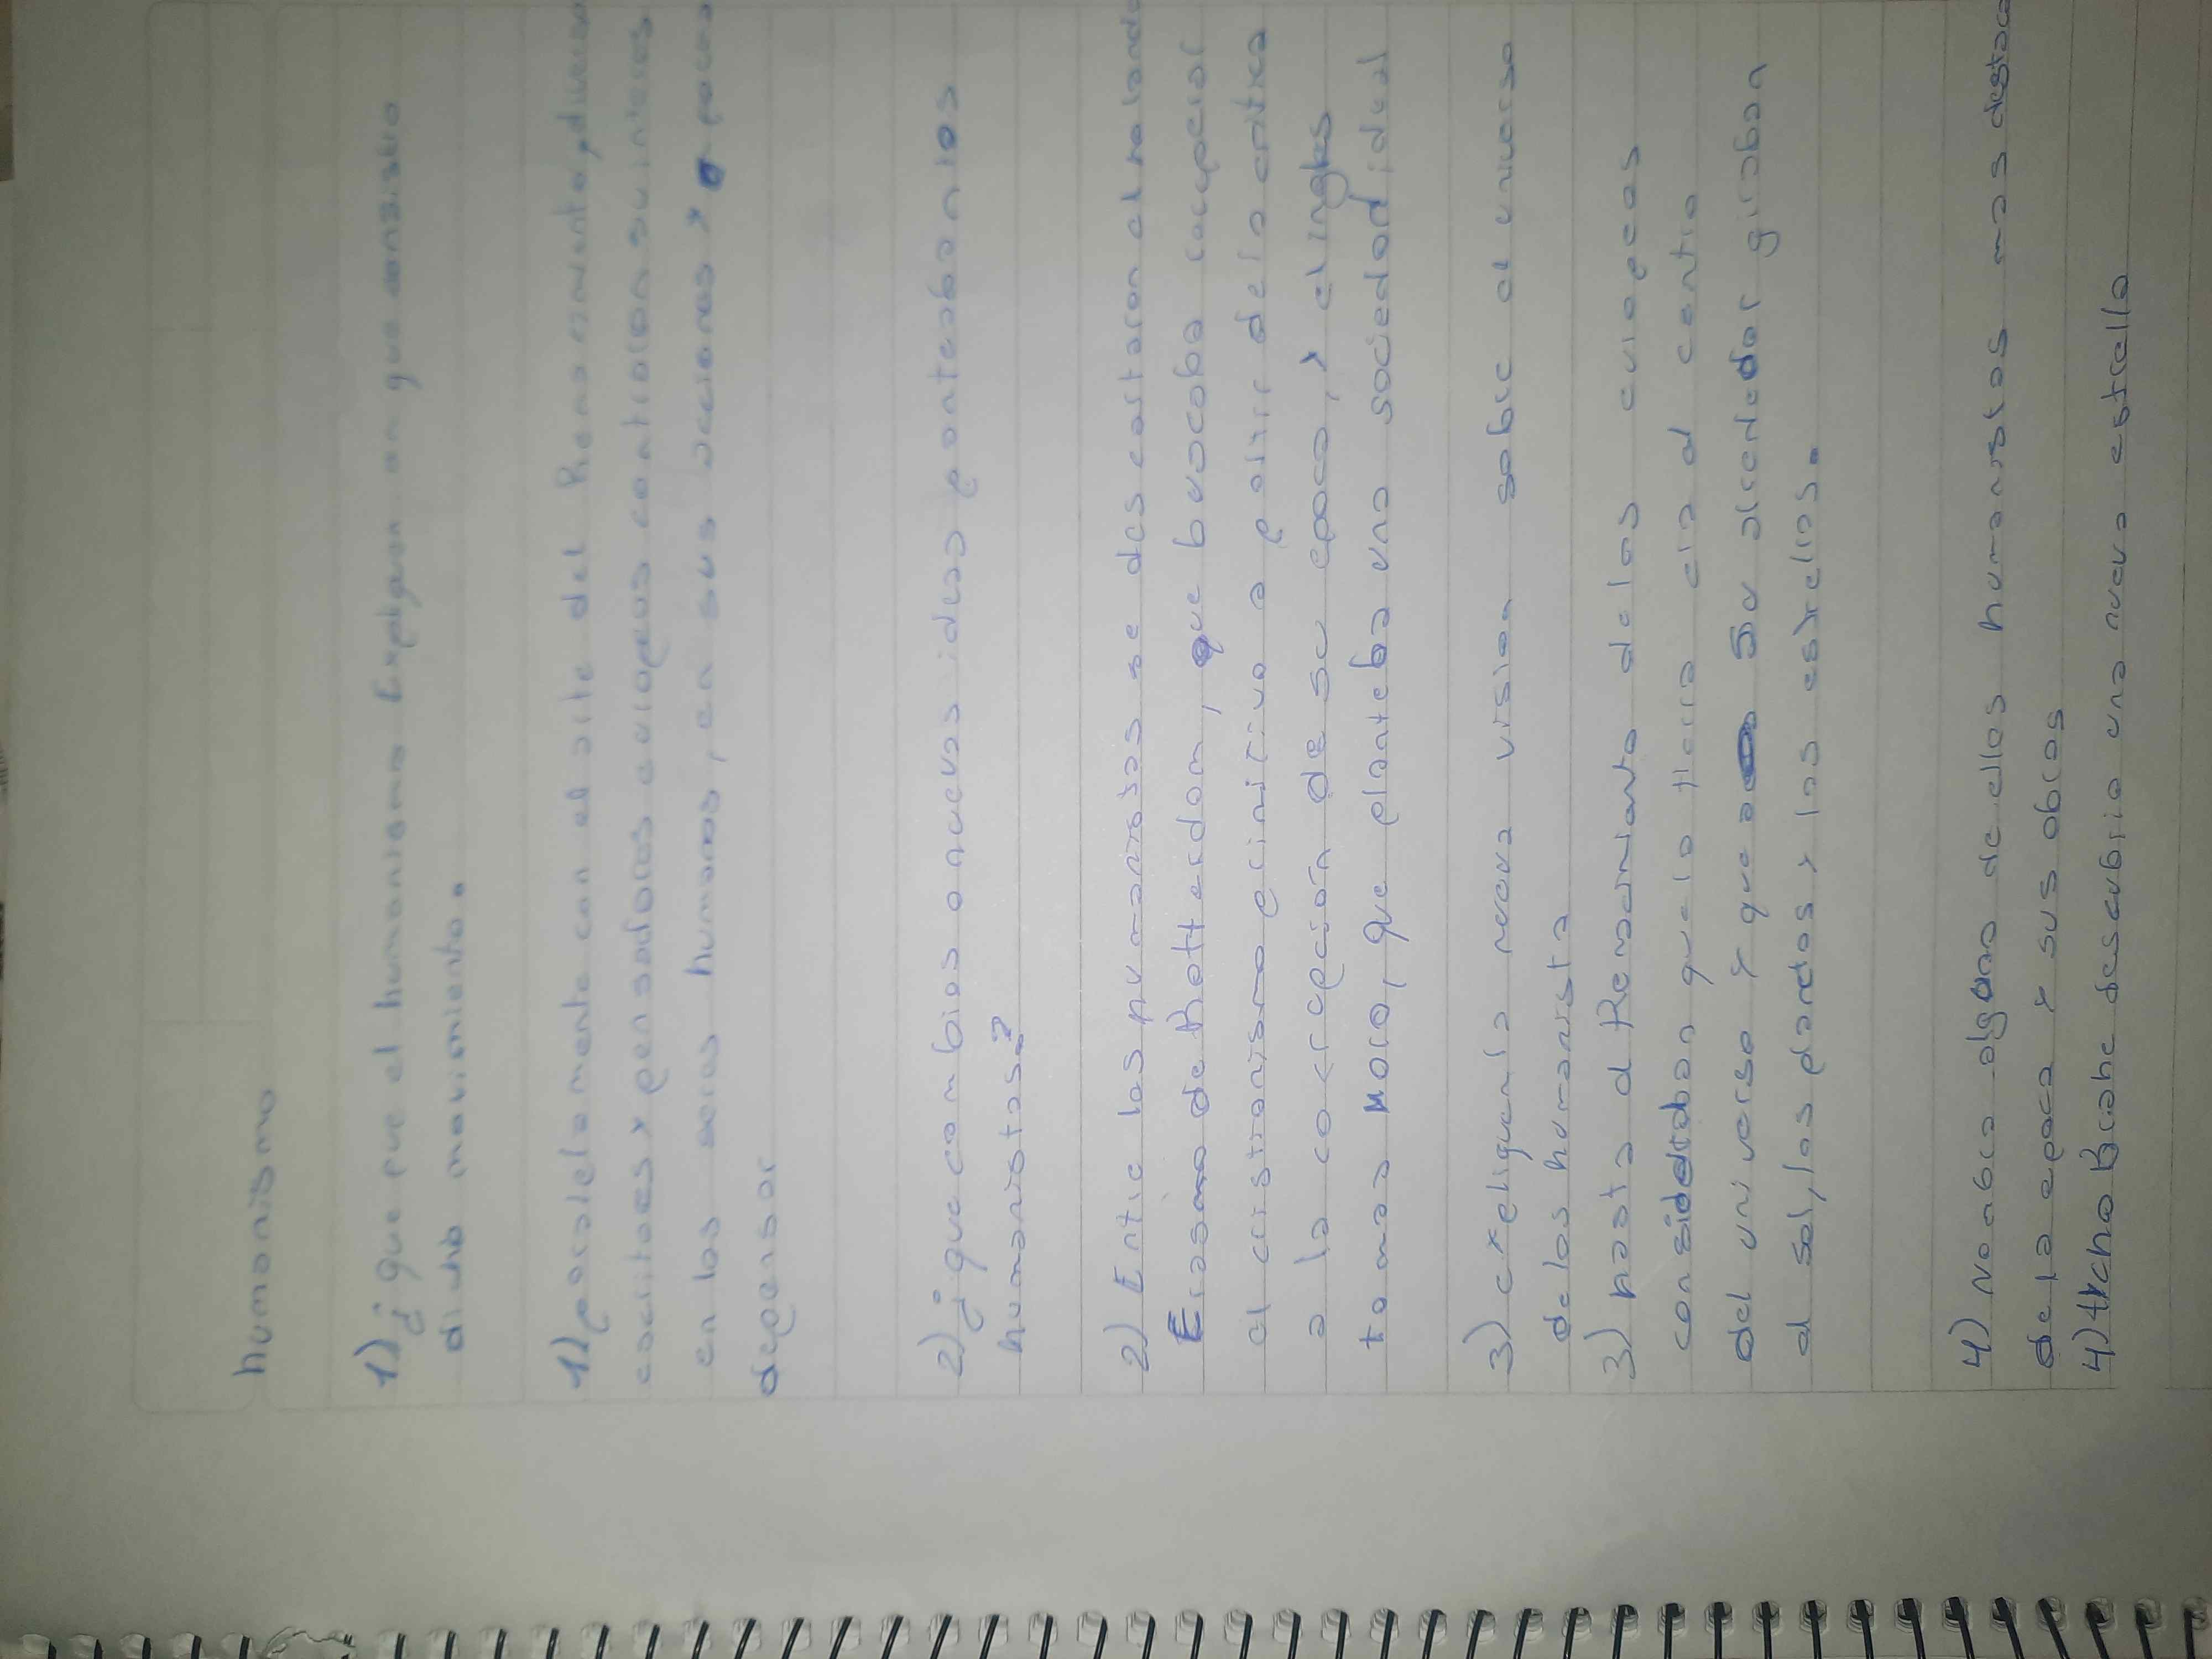 humanismo
1)¿que pue el humanismo Expliquen en que consistio
dicho movimiento.
1)paralelamente con el arte del Renacimiento, diversos
escritoes y pensadores europeus centraron su interes
en los seres humanos, en sus acciones y pocma
depensar
2)¿que cambios o nuevas ideas planteaban los
humanistas?
2) Entre los humanistas se des cartaron el holande
Erasmo de Rotterdam, que buvocaba recuperar
el cristianismo primitivo a partir de la critica
a la corrupción de su epoca, y el ingles
tomas Moro, que planteba una sociedad ideal
3) expliquen la nueva vision sobre el universo
de los humanista
3) hasta el Renacimiento de los europeos
considedaban que la tierra era el centro
del universo y que a su alrededor giraban
el sol, los planetas y las estrellas.
4) Nombra alguno de ellos humanistas mas destaca
de la epoca y sus obras
4) tycho Brahe descubrio una nueva estrella